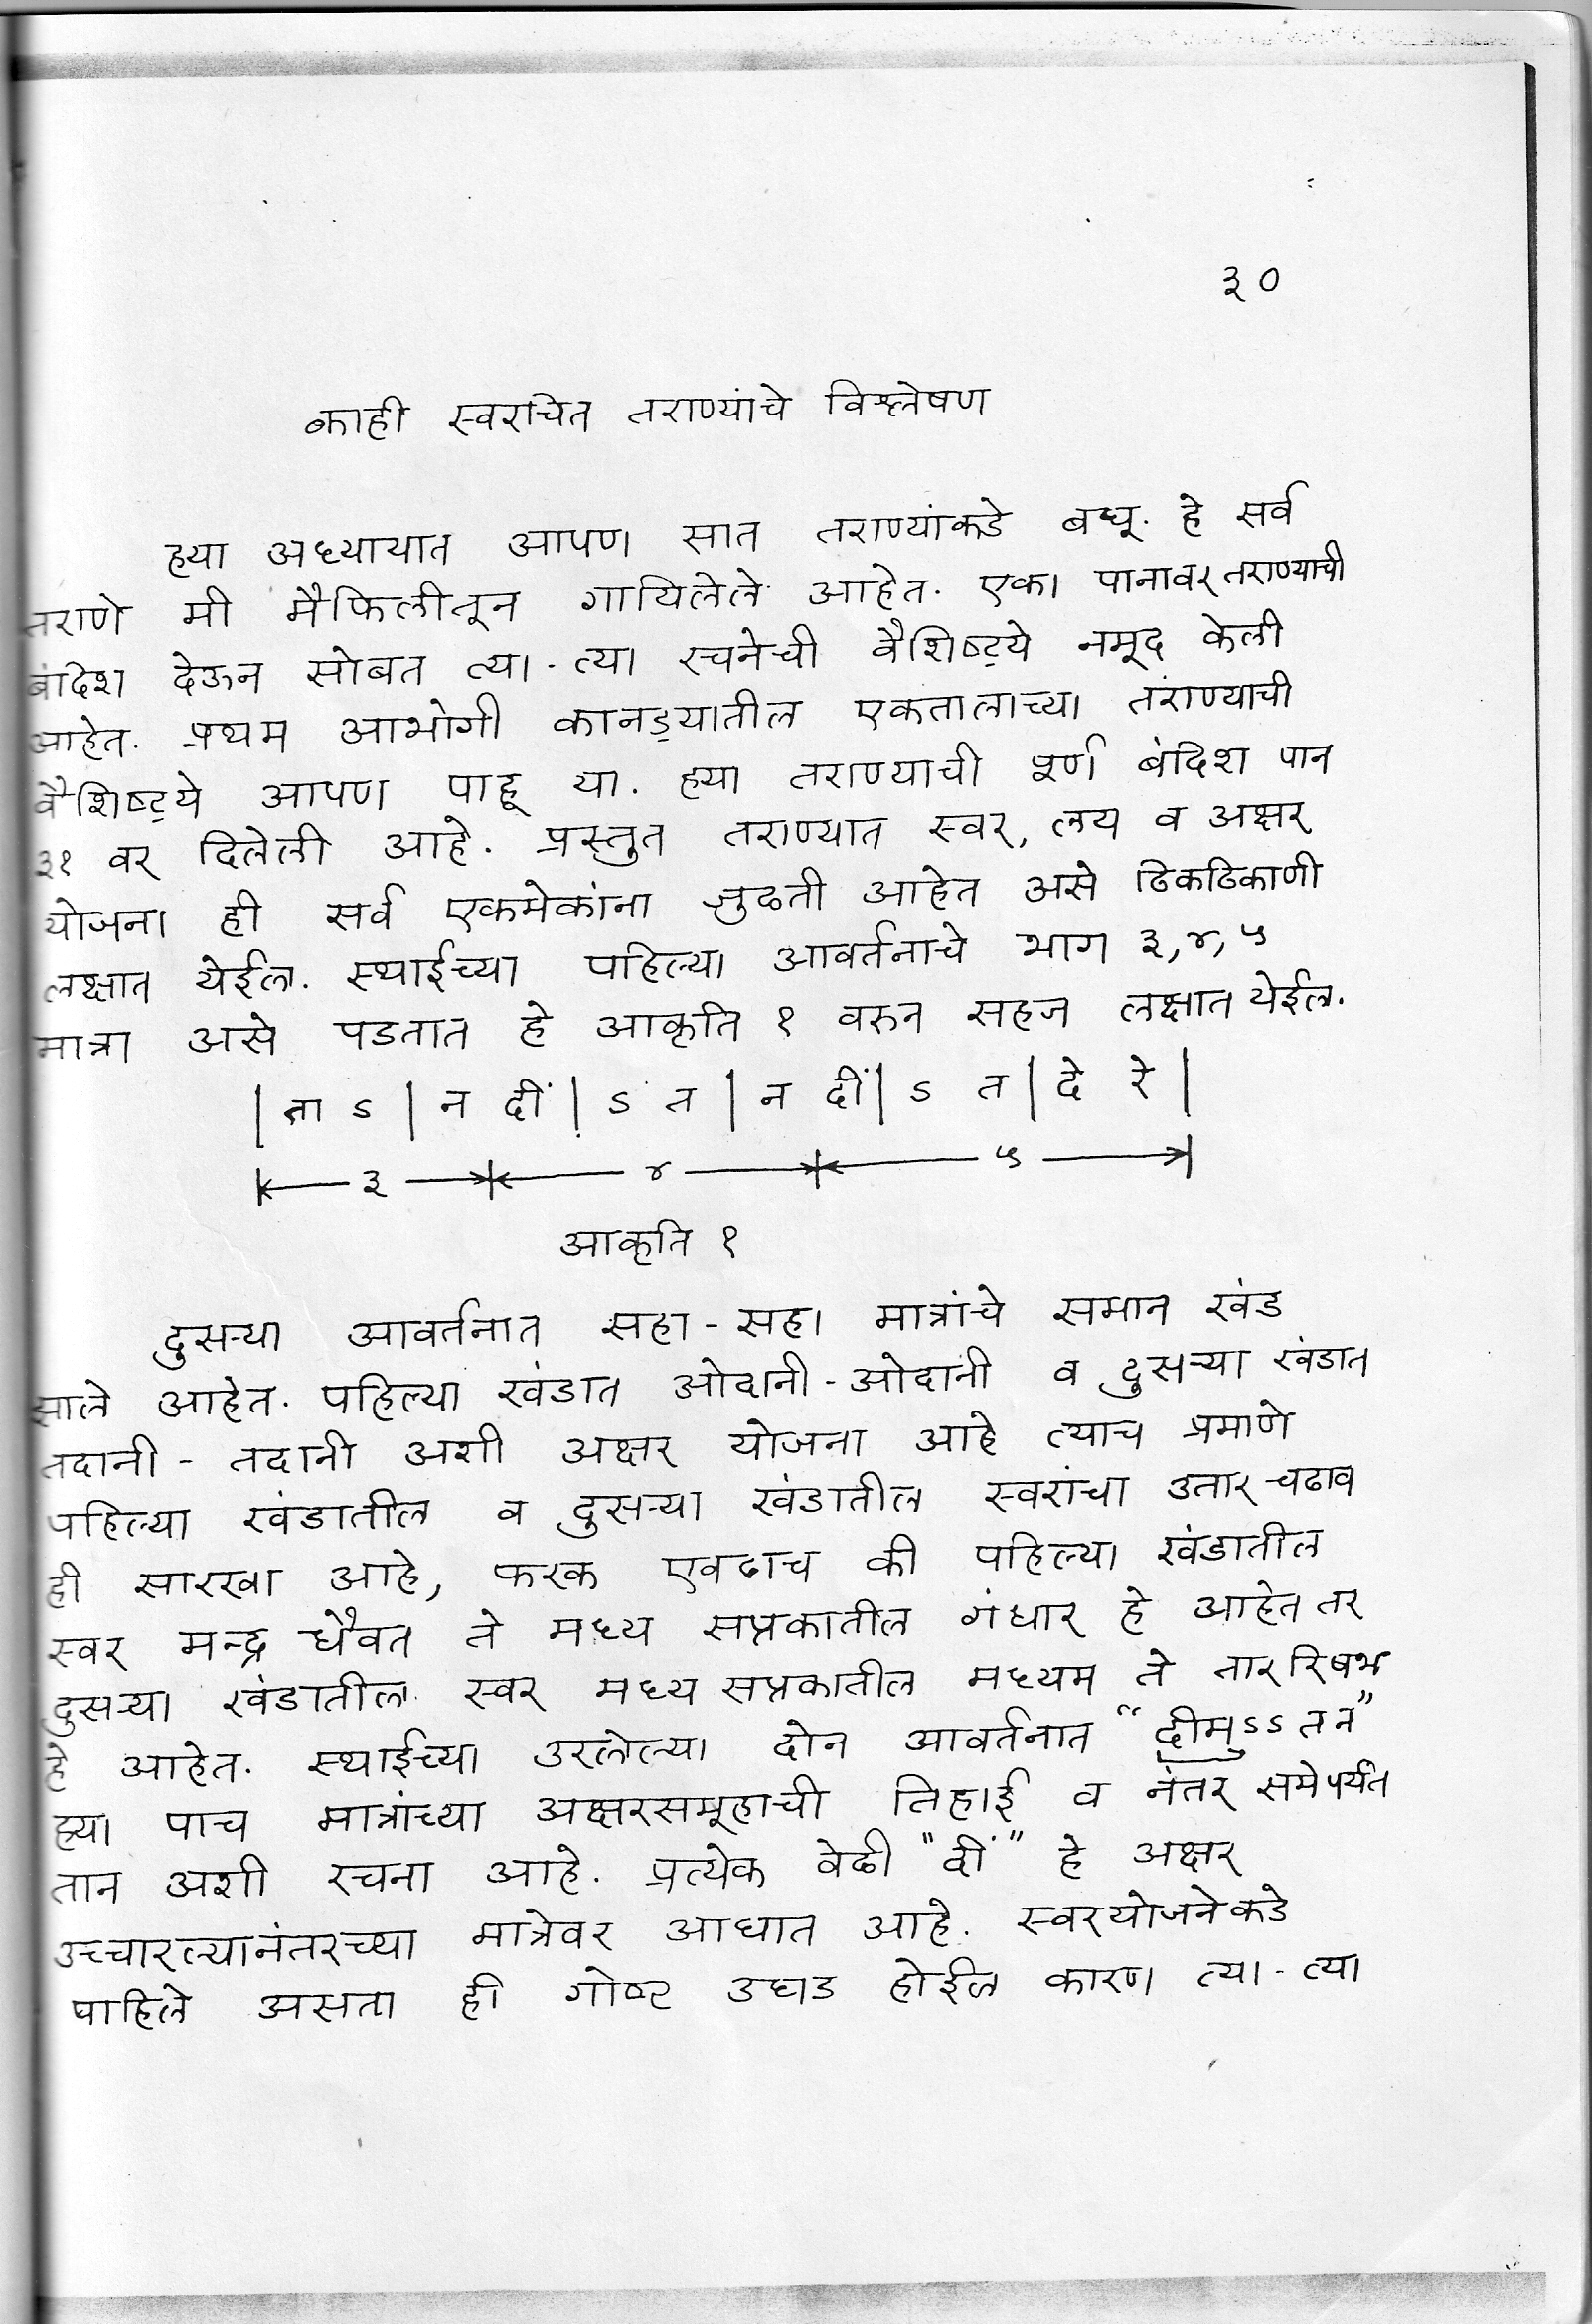 ३०
काही स्वरचित तराण्यांचे विश्लेषण
ह्या अध्यायात आपण सात तराण्यांकडे बघू. हे सर्व
तराणे मी मैफिलीतून गायिलेले आहेत. एका पानावर तराण्याची
बंदिश देऊन सोबत त्या-त्या रचनेची वैशिष्ट्ये नमूद केली
आहेत. प्रथम आभोगी कानड्यातील एकतालाच्या तराण्याची
वैशिष्ट्ये आपण पाहू या. ह्या तराण्याची पूर्ण बंदिश पान
३१ वर दिलेली आहे. प्रस्तुत तराण्यात स्वर, लय व अक्षर
योजना ही सर्व एकमेकांना जुळती आहेत असे ठिकठिकाणी
लक्षात येईल. स्थाईच्या पहिल्या आवर्तनाचे भाग ३,४,५
मात्रा असे पडतात हे आकृति १ वरुन सहज लक्षात येईल.
| ता ऽ | न दीं | ऽ त | न दीं | ऽ त | दे रे |
३ ४ ५
आकृति १
दुसऱ्या आवर्तनात सहा-सहा मात्रांचे समान खंड
झाले आहेत. पहिल्या खंडात ओदानी-ओदानी व दुसऱ्या खंडात
तदानी - तदानी अशी अक्षर योजना आहे त्याच प्रमाणे
पहिल्या खंडातील व दुसऱ्या खंडातील स्वरांचा उतार चढाव
ही सारखा आहे, फरक एवढाच की पहिल्या खंडातील
स्वर मन्द्र धैवत ते मध्य सप्तकातील गंधार हे आहेत तर
दुसऱ्या खंडातील स्वर मध्य सप्तकातील मध्यम ते तार रिषभ
हे आहेत. स्थाईच्या उरलेल्या दोन आवर्तनात "दीम्ऽऽ तन"
ह्या पाच मात्रांच्या अक्षरसमूहाची तिहाई व नंतर समेपर्यंत
तान अशी रचना आहे. प्रत्येक वेळी "दीं" हे अक्षर
उच्चारल्यानंतरच्या मात्रेवर आघात आहे. स्वरयोजनेकडे
पाहिले असता ही गोष्ट उघड होईल कारण त्या-त्या